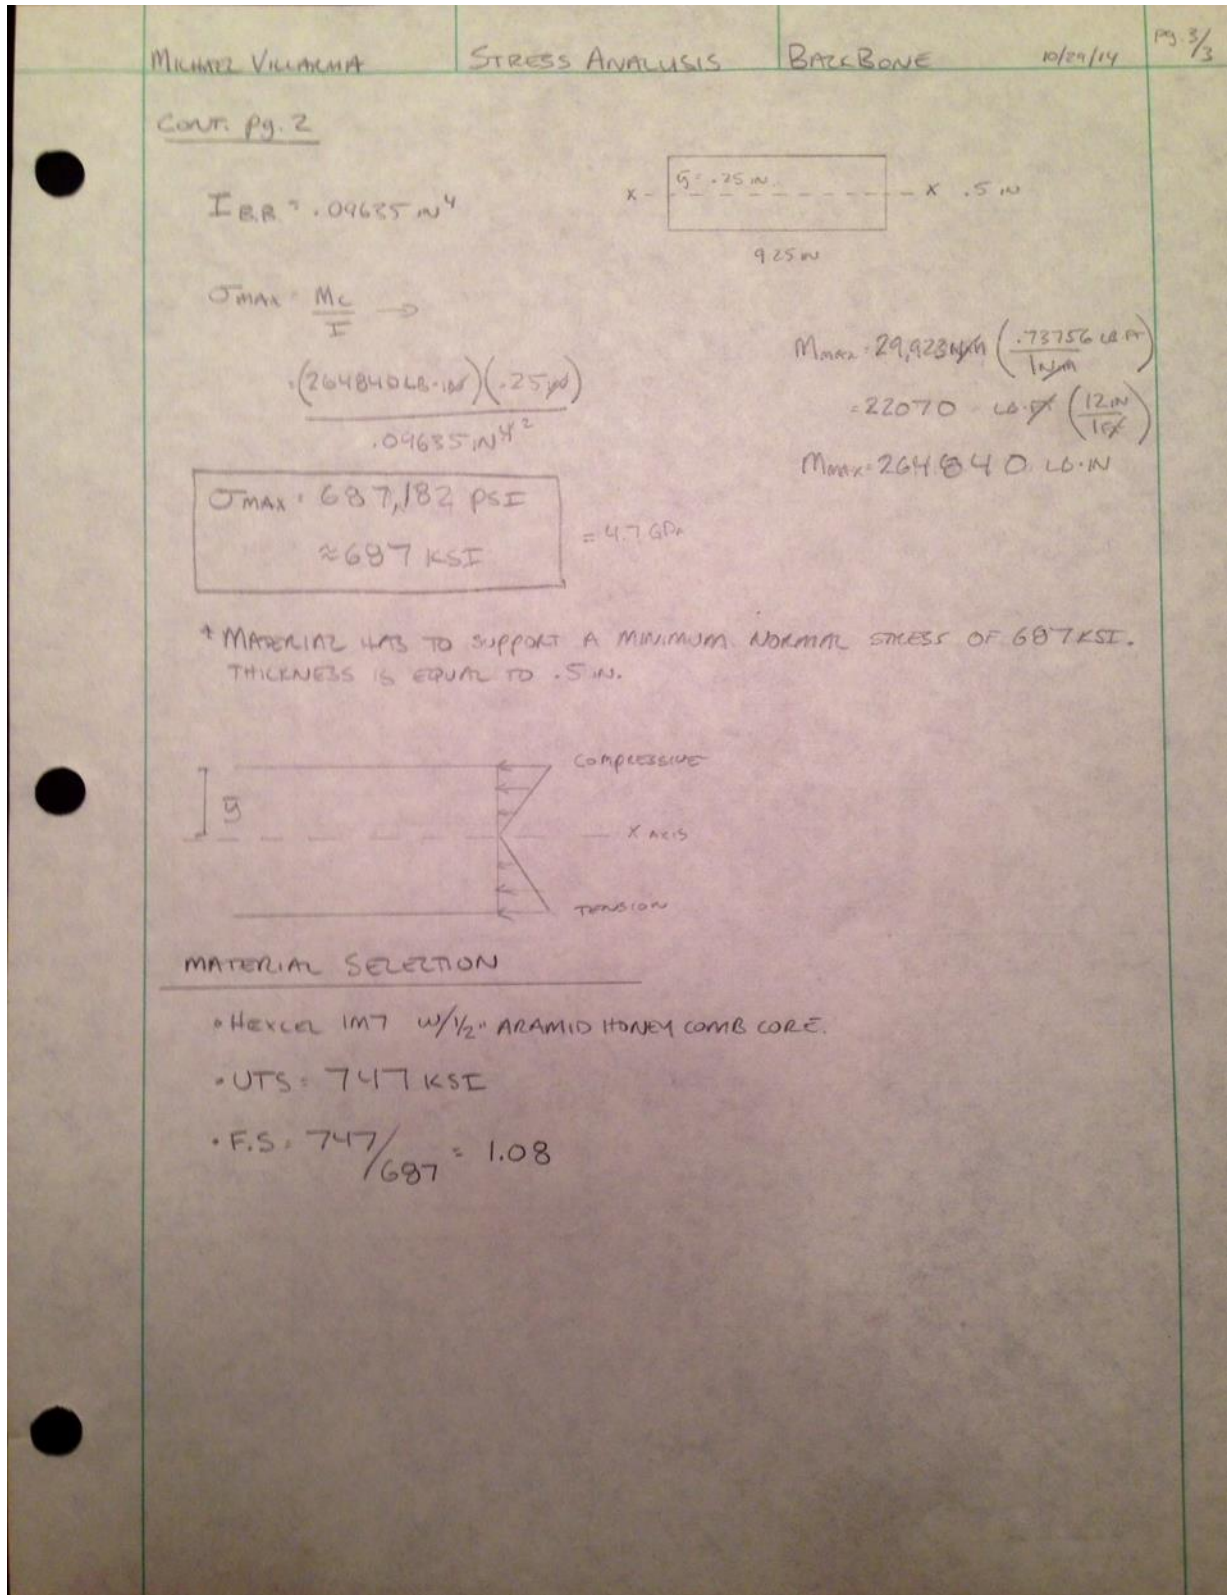 MICHAEL VILLARMA STRESS ANALYSIS BACKBONE 10/29/14 pg. 3/3
CONT. pg. 2
ȳ = .25 IN.
X X .5 IN
9.25 IN
I = .09635 IN⁴
σMAX = Mc/I →
Mmax = 29,923 N·m (.73756 LB·FT / 1 N·m)
= (264840 LB·IN)(.25 IN) / .09635 IN⁴ ²
= 22070 LB·FT (12 IN / 1 FT)
Mmax = 264840 LB·IN
σMAX = 687,182 PSI
≈ 687 KSI
= 4.7 GPa
* MATERIAL HAS TO SUPPORT A MINIMUM NORMAL STRESS OF 687 KSI.
THICKNESS IS EQUAL TO .5 IN.
COMPRESSIVE
ȳ
X AXIS
TENSION
MATERIAL SELECTION
• HEXCEL IM7 W/ 1/2" ARAMID HONEY COMB CORE.
• UTS = 747 KSI
• F.S = 747/687 = 1.08